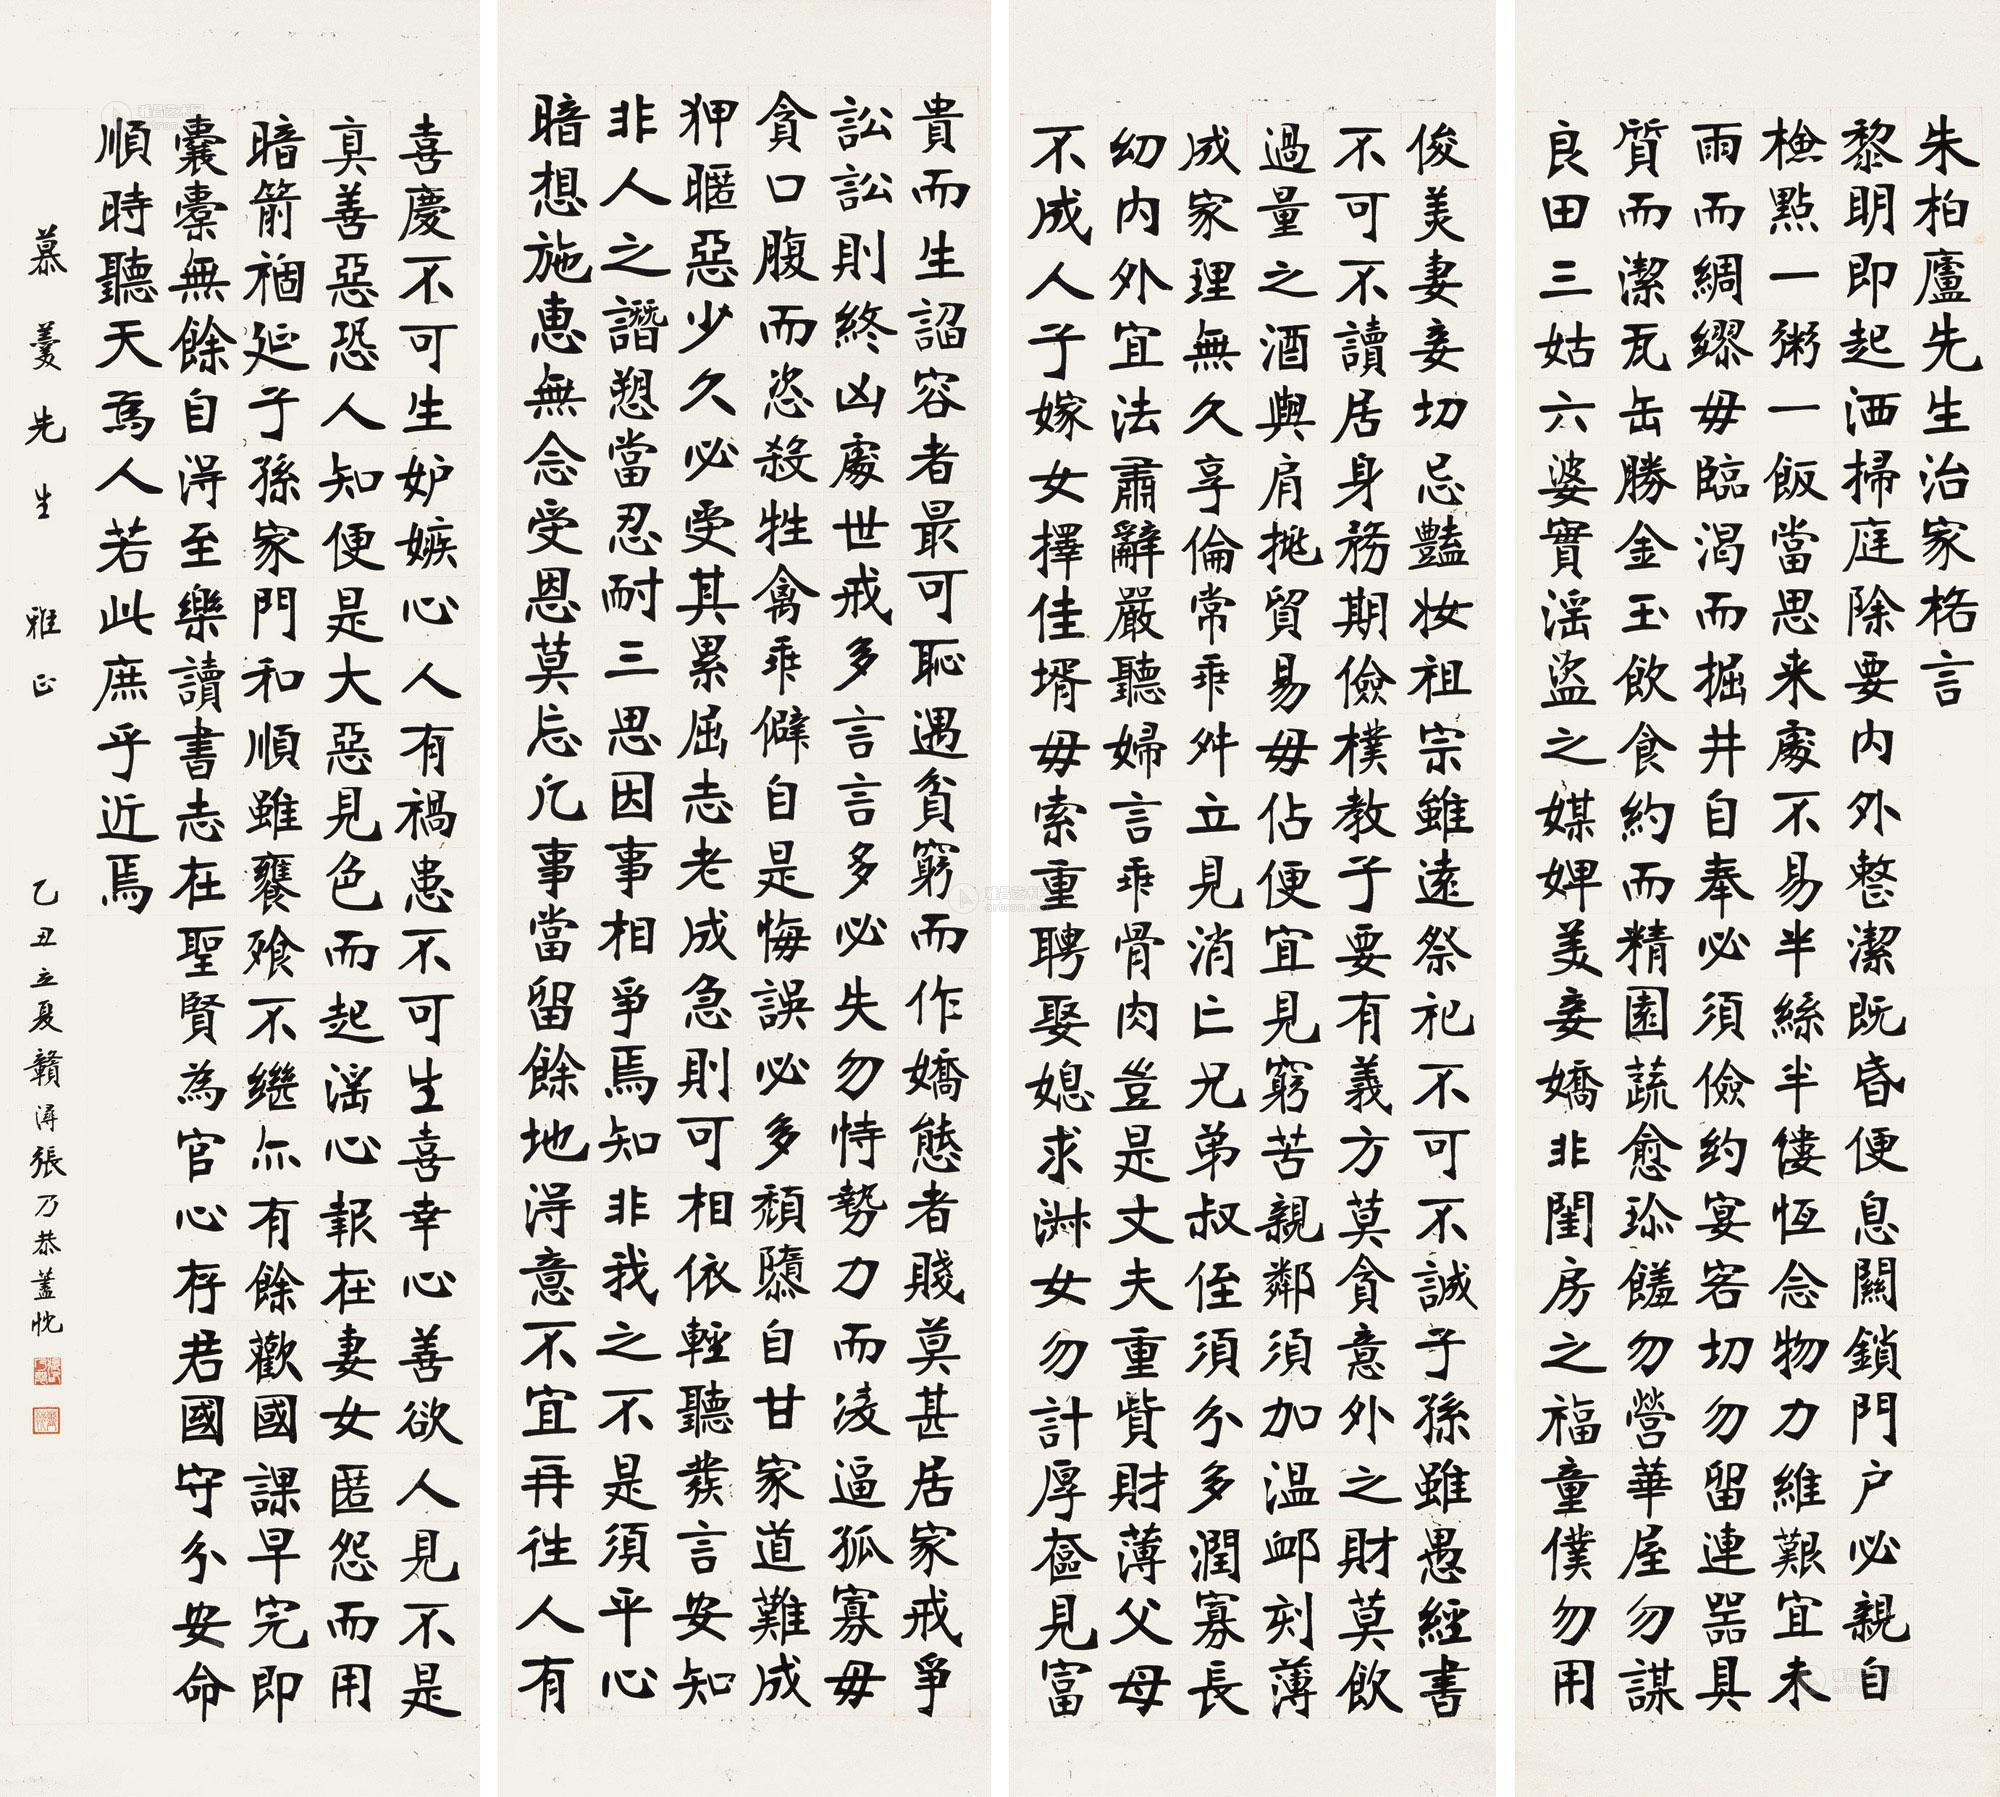 朱柏廬先生治家格言
黎明即起洒掃庭除要内外整潔既昏便息關鎖門户必親自
檢點一粥一飯當思来處不易半絲半縷恆念物力維艱宜未
雨而綢繆毋臨渴而掘井自奉必須儉約宴客切勿留連器具
質而潔瓦缶勝金玉飲食約而精園蔬愈珍饈勿營華屋勿謀
良田三姑六婆實滛盜之媒婢美妾嬌非閨房之福童僕勿用
俊美妻妾切忌豔妝祖宗雖遠祭祀不可不誠子孫雖愚經書
不可不讀居身務期儉樸教子要有義方莫貪意外之財莫飲
過量之酒與肩挑貿易毋佔便宜見窮苦親鄰須加温卹刻薄
成家理無久享倫常乖舛立見消亡兄弟叔侄須分多潤寡長
幼内外宜法肅辭嚴聽婦言乖骨肉豈是丈夫重貲財薄父母
不成人子嫁女擇佳壻毋索重聘娶媳求淑女勿計厚奩見富
貴而生諂容者最可恥遇貧窮而作嬌態者賤莫甚居家戒爭
訟訟則終凶處世戒多言言多必失勿恃勢力而凌逼孤寡毋
貪口腹而恣殺牲禽乖僻自是悔誤必多頹隳自甘家道難成
狎暱惡少久必受其累屈志老成急則可相依輕聽發言安知
非人之譖愬當忍耐三思因事相爭焉知非我之不是須平心
暗想施惠無念受恩莫忘凡事當留餘地得意不宜再往人有
喜慶不可生妒嫉心人有禍患不可生喜幸心善欲人見不是
真善惡恐人知便是大惡見色而起滛心報在妻女匿怨而用
暗箭禍延子孫家門和順雖饔飱不繼亦有餘歡國課早完即
囊橐無餘自得至樂讀書志在聖賢為官心存君國守分安命
順時聽天為人若此庶乎近焉
慕羹先生 雅正
乙丑立夏贛潯張乃恭蓋忱
雅昌艺术网
artron.net